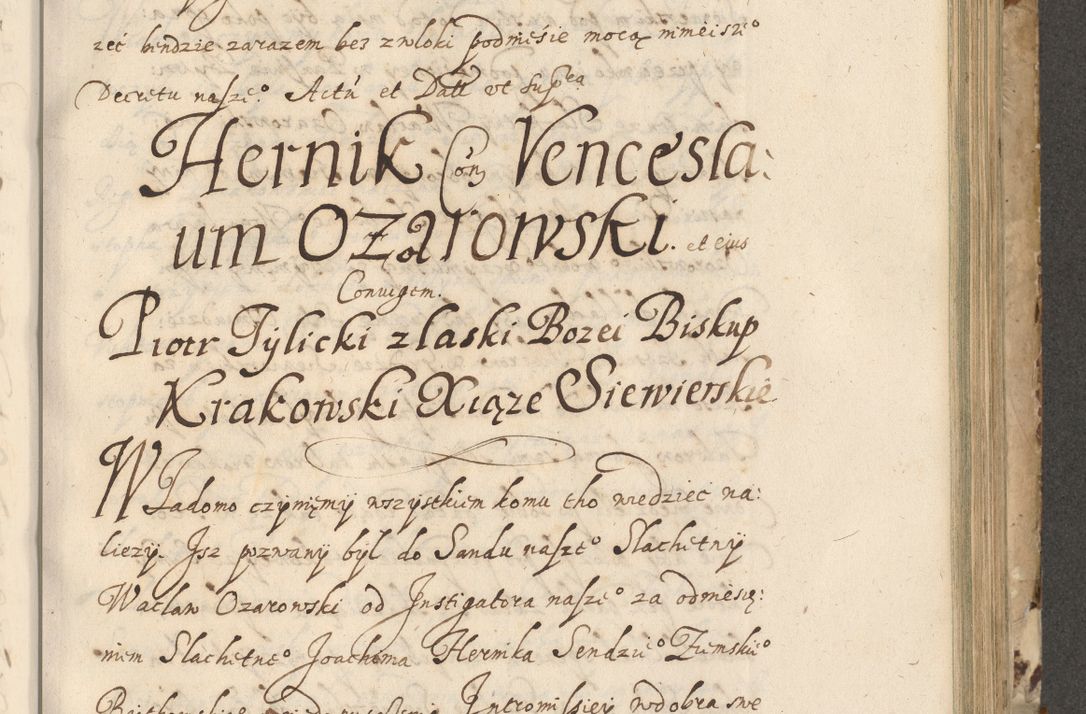 zeć bendzie zarazem bes zwłoki podniesie mocą ninieisze°
Decretu nasze° Actũ et Datt vt supea
Hernik Con Vencesla:
um Ozarowski. et eius
Coniugem.
Piotr Tylicki z laski Bozei Biskup
Krakowski Xiąze Siewierskie
Wiadomo czynięmy wszystkiem komu tho wiedziec na:
liezy. Isz pozwany był do Sandu nasze° Slachetny
Wacław Ozarowski od Instigatora nasze° za odniesię:
niem Slachetne° Joachima Hernika Sendzie° Ziemskie°
Intromissiey w dobra swe